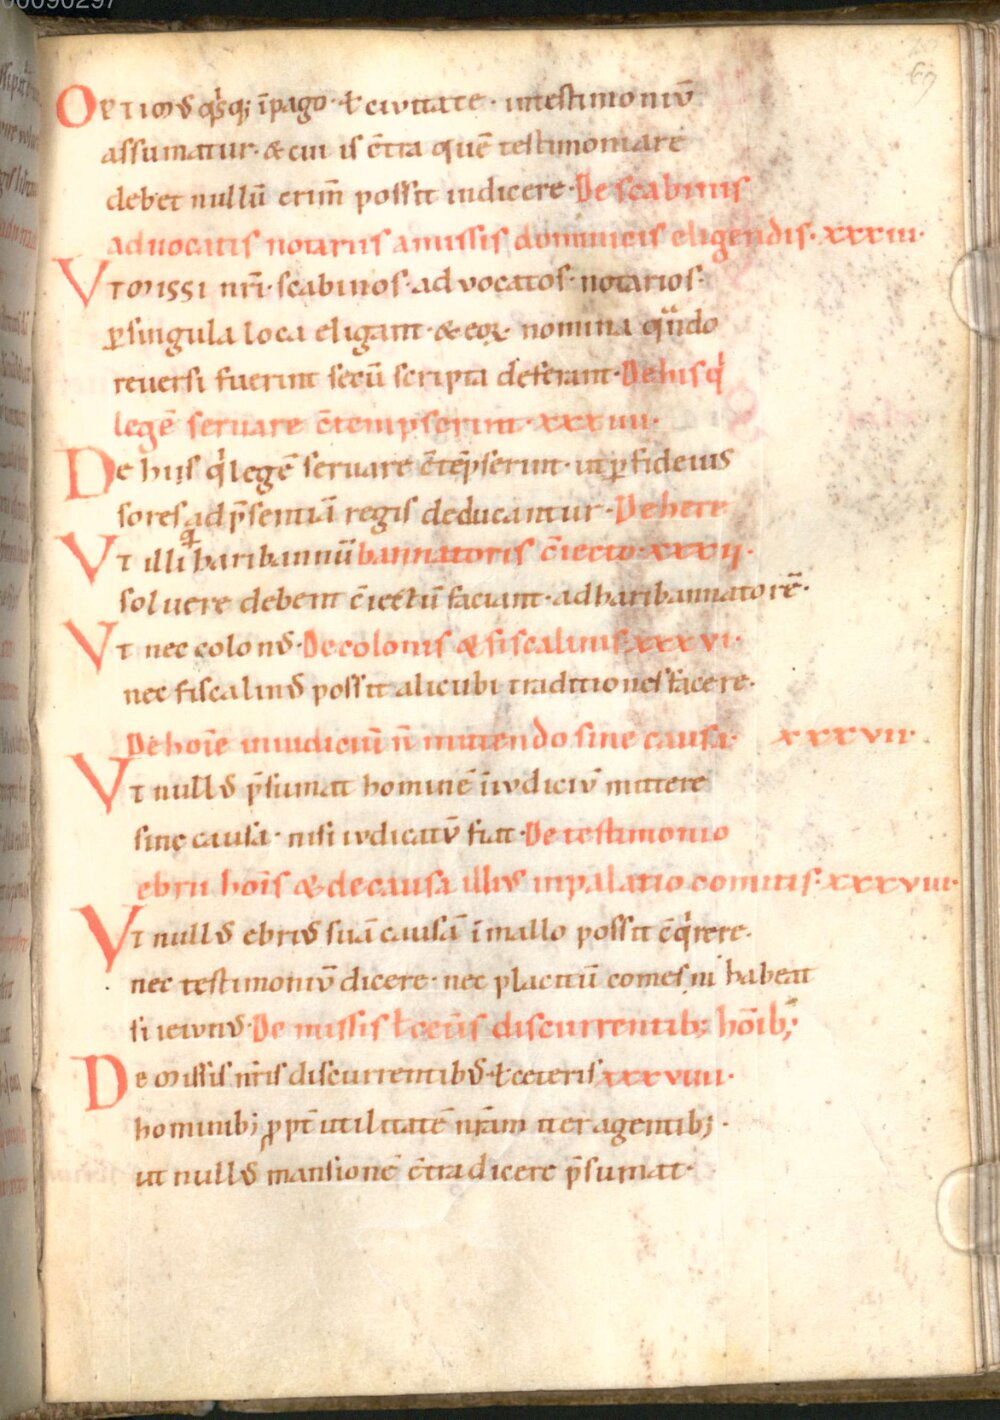 00090297
67
Optimꝰ q̇sq; īpago · ꝉ ciuitate · intestimoniū
assumatur · & cui is c̄tra quē testimoniare
debet nullū crim̄ possit indicere · De scabinis
aduocatis notariis amissis dominicis eligendis · xxxiii ·
Vt missi nr̄i · scabinos · aduocatos · notarios ·
ꝑsingula loca eligant · & eoꝝ nomina qn̄do
reuersi fuerint secū scripta deferant · De his q̇
legē seruare c̄tempserint · xxxiiii ·
De hiis q̇ legē seruare c̄tēpserint · ut ꝑ fideius
sores ad p̄sentiā regis deducantur · De here
Vt illi q̇ haribannū bannatoris c̄iecto · xxxv ·
soluere debent c̄iectū faciant · ad haribannatorē ·
Vt nec colonꝰ · De colonis & fiscalinis · xxxvi ·
nec fiscalinꝰ possit alicubi traditiones facere ·
De hoīe iniudiciū n̄ mittendo sine causa · xxxvii ·
Vt nullꝰ p̄sumat hominē īiudiciū mittere
sine causa · nisi iudicatū fiat · De testimonio
ebrii hoīs & de causa illiꝰ inpalatio comitis · xxxviii ·
Vt nullꝰ ebriꝰ suā causā ī mallo possit c̄q̇rere ·
nec testimoniū dicere · nec placitū comes ni habeat
si ieiunꝰ · De missis ꝉ cet̄is discurrentib; hōib;
De missis nr̄is discurrentibꝰ · ꝉ ceteris xxxviiii ·
hominib; ꝓpt̄ utilitatē nr̄am iter agentib; ·
ut nullꝰ mansionē c̄tradicere p̄sumat ·